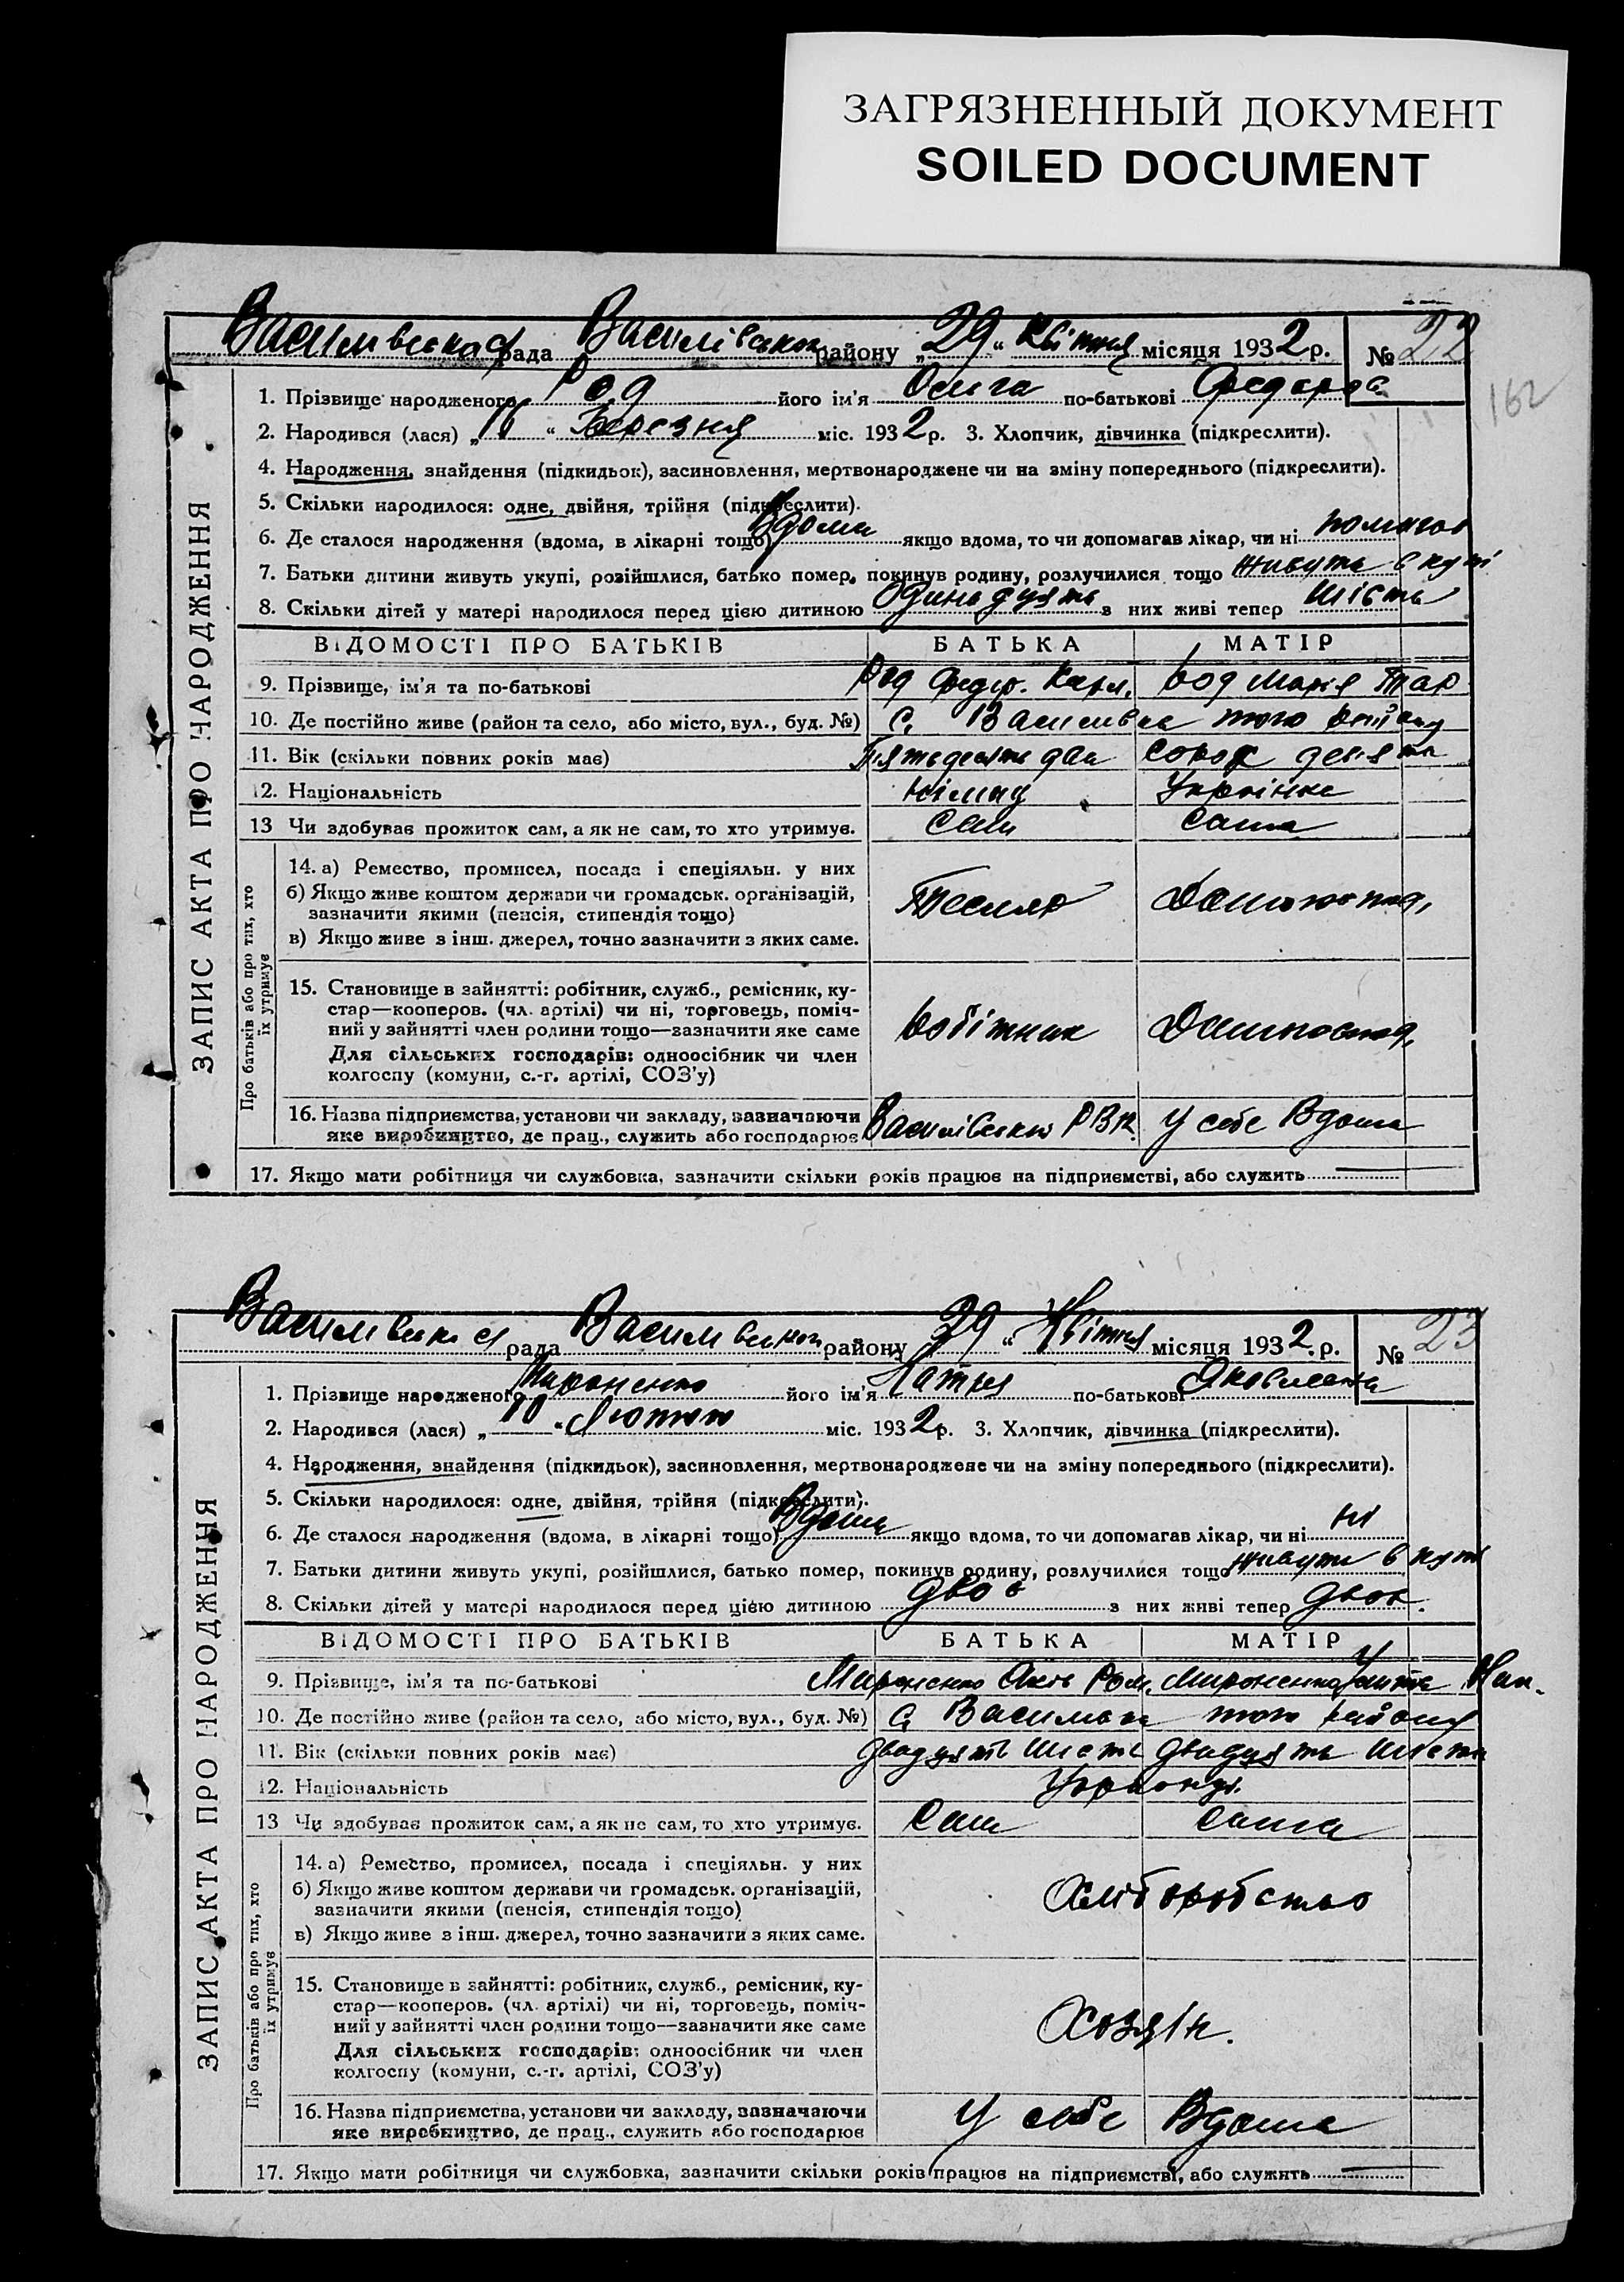 ЗАГРЯЗНЕННЫЙ ДОКУМЕНТ
SOILED DOCUMENT
рада Василівськ району „29“ Квітня місяця 1932 р. № 22
162
1. Прізвище народженого Род його ім'я Ольга по-батькові
2. Народився (лася) „ “ Березня міс. 1932 р. 3. Хлопчик, дівчинка (підкреслити).
4. Народження, знайдення (підкидьок), засиновлення, мертвонароджене чи на зміну попереднього (підкреслити).
5. Скільки народилося: одне, двійня, трійня (підкреслити).
6. Де сталося народження (вдома, в лікарні тощо) Вдома якщо вдома, то чи допомагав лікар, чи ні помагав
7. Батьки дитини живуть укупі, розійшлися, батько помер, покинув родину, розлучилися тощо живуть вкупі
8. Скільки дітей у матері народилося перед цією дитиною з них живі тепер шість
ВІДОМОСТІ ПРО БАТЬКІВ БАТЬКА МАТІР
9. Прізвище, ім'я та по-батькові Род Федор. Карл. Род Марія Тар
10. Де постійно живе (район та село, або місто, вул., буд. №) с. Василівка того району
11. Вік (скільки повних років має) Пятьдесять два сорок девять
12. Національність Німец Українка
13 Чи здобував прожиток сам, а як не сам, то хто утримує. Сам Сама
14. а) Ремество, промисел, посада і спеціяльн. у них
б) Якщо живе коштом держави чи громадськ. організацій,
зазначити якими (пенсія, стипендія тощо)
в) Якщо живе з інш. джерел, точно зазначити з яких саме.
Тесляр Домогоспод.
15. Становище в зайнятті: робітник, служб., ремісник, ку-
стар—кооперов. (чл. артілі) чи ні, торговець, поміч-
ний у зайнятті член родини тощо—зазначити яке саме
Для сільських господарів: одноосібник чи член
колгоспу (комуни, с.-г. артілі, СОЗ'у)
Робітник Домогоспод.
16. Назва підприємства, установи чи закладу, зазначаючи
яке виробництво, де прац., служить або господарює
РВК. У себе Вдома
17. Якщо мати робітниця чи службовка, зазначити скільки років працює на підприємстві, або служить
ЗАПИС АКТА ПРО НАРОДЖЕННЯ
Про батьків або про тих, хто
їх утримує
рада району 29 “ Квітня місяця 1932 р. № 23
1. Прізвище народженого Мироненко його ім'я Катря по-батькові Яковлевна
2. Народився (лася) „10 “ Лютого міс. 1932 р. 3. Хлопчик, дівчинка (підкреслити).
4. Народження, знайдення (підкидьок), засиновлення, мертвонароджене чи на зміну попереднього (підкреслити).
5. Скільки народилося: одне, двійня, трійня (підкреслити).
6. Де сталося народження (вдома, в лікарні тощо) Вдома якщо вдома, то чи допомагав лікар, чи ні ні
7. Батьки дитини живуть укупі, розійшлися, батько помер, покинув родину, розлучилися тощо живуть вкупі
8. Скільки дітей у матері народилося перед цією дитиною двоє з них живі тепер двоє.
ВІДОМОСТІ ПРО БАТЬКІВ БАТЬКА МАТІР
9. Прізвище, ім'я та по-батькові Мироненко Яків Ром. Мироненко
10. Де постійно живе (район та село, або місто, вул., буд. №) с Василівка того району
11. Вік (скільки повних років має) двадцять шість двадцять шість
12. Національність
13 Чи здобував прожиток сам, а як не сам, то хто утримує. Сам сама
14. а) Ремество, промисел, посада і спеціяльн. у них
б) Якщо живе коштом держави чи громадськ. організацій,
зазначити якими (пенсія, стипендія тощо)
в) Якщо живе з інш. джерел, точно зазначити з яких саме.
Хліборобство
15. Становище в зайнятті: робітник, служб., ремісник, ку-
стар—кооперов. (чл. артілі) чи ні, торговець, поміч-
ний у зайнятті член родини тощо—зазначити яке саме
Для сільських господарів: одноосібник чи член
колгоспу (комуни, с.-г. артілі, СОЗ'у)
Хозяін.
16. Назва підприємства, установи чи закладу, зазначаючи
яке виробництво, де прац., служить або господарює
У себе Вдома
17. Якщо мати робітниця чи службовка, зазначити скільки років працює на підприємстві, або служить
ЗАПИС АКТА ПРО НАРОДЖЕННЯ
Про батьків або про тих, хто
їх утримує